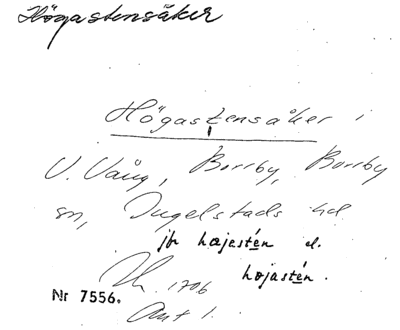 Högastensåker
Högastensåker i
V. Vång, Borrby, Borrby
sn, Ingelstads hd
jfr hæjestén el.
højastén.
1706
Nr 7556.
Ant 1.